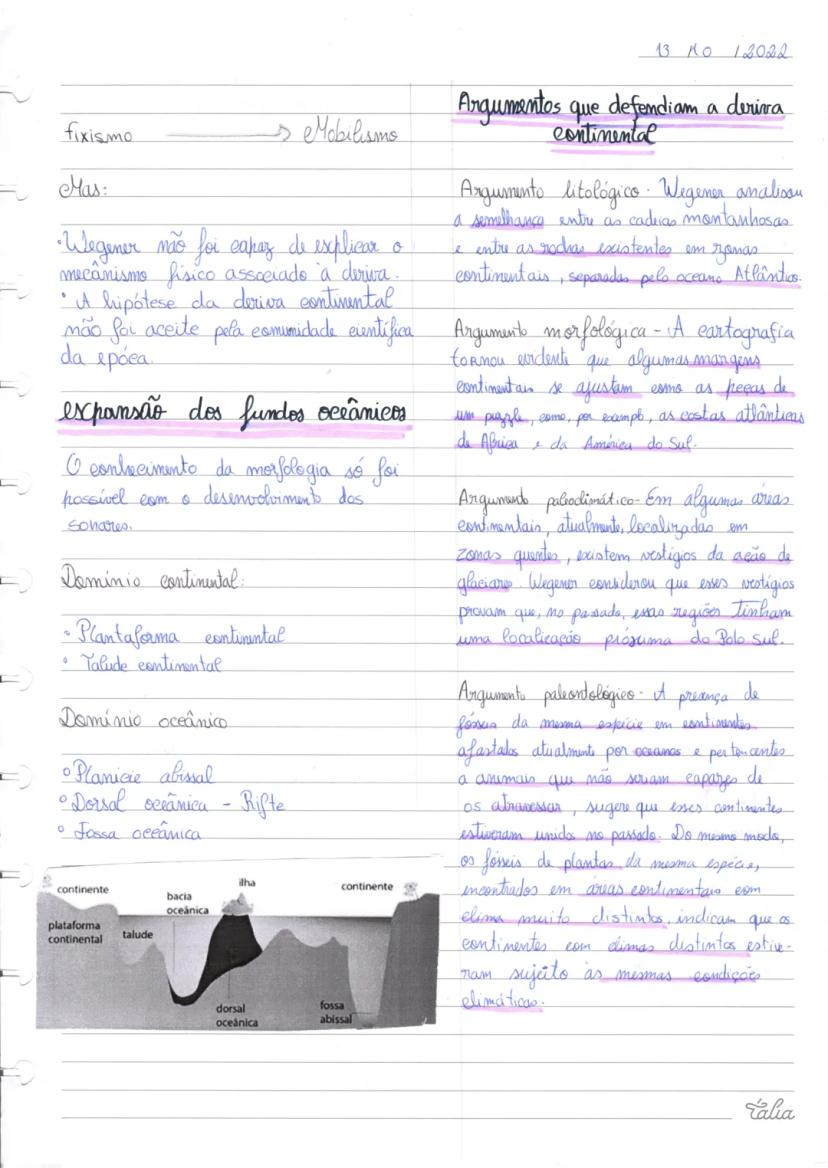 13 10 / 2022
fixismo → Mobilismo
Mas:
• Wegener não foi capaz de explicar o
mecânismo físico associado à deriva.
• A hipótese da deriva continental
não foi aceite pela comunidade científica
da época.
expansão dos fundos oceânicos
O conhecimento da morfologia só foi
possível com o desenvolvimento dos
sonares.
Domínio continental:
• Plantaforma continental
• Talude continental
Domínio oceânico
• Planície abissal
• Dorsal oceânica - Rifte
• Fossa oceânica
continente
bacia
oceânica
ilha
continente
plataforma
continental
talude
dorsal
oceânica
fossa
abissal
Argumentos que defendiam a deriva
continental
Argumento litológico - Wegener analisou
a semelhança entre as cadeias montanhosas
e entre as rochas existentes em zonas
continentais, separadas pelo oceano Atlântico.
Argumento morfológica - A cartografia
tornou evidente que algumas margens
continentais se ajustam como as peças de
um puzzle, como, por exemplo, as costas atlânticas
de África e da América do Sul.
Argumento paleoclimático - Em algumas áreas
continentais, atualmente, localizadas em
zonas quentes, existem vestígios da ação de
glaciares. Wegener considerou que esses vestígios
provam que, no passado, essas regiões tinham
uma localização próxima do Polo Sul.
Argumento paleontológico - A presença de
fósseis da mesma espécie em continentes
afastados atualmente por oceanos e pertencentes
a animais que não seriam capazes de
os atravessar, sugere que esses continentes
estiveram unidos no passado. Do mesmo modo,
os fósseis de plantas da mesma espécie,
encontrados em áreas continentais com
clima muito distintos, indicam que os
continentes com climas distintos estive-
ram sujeito às mesmas condições
climáticas.
Tália